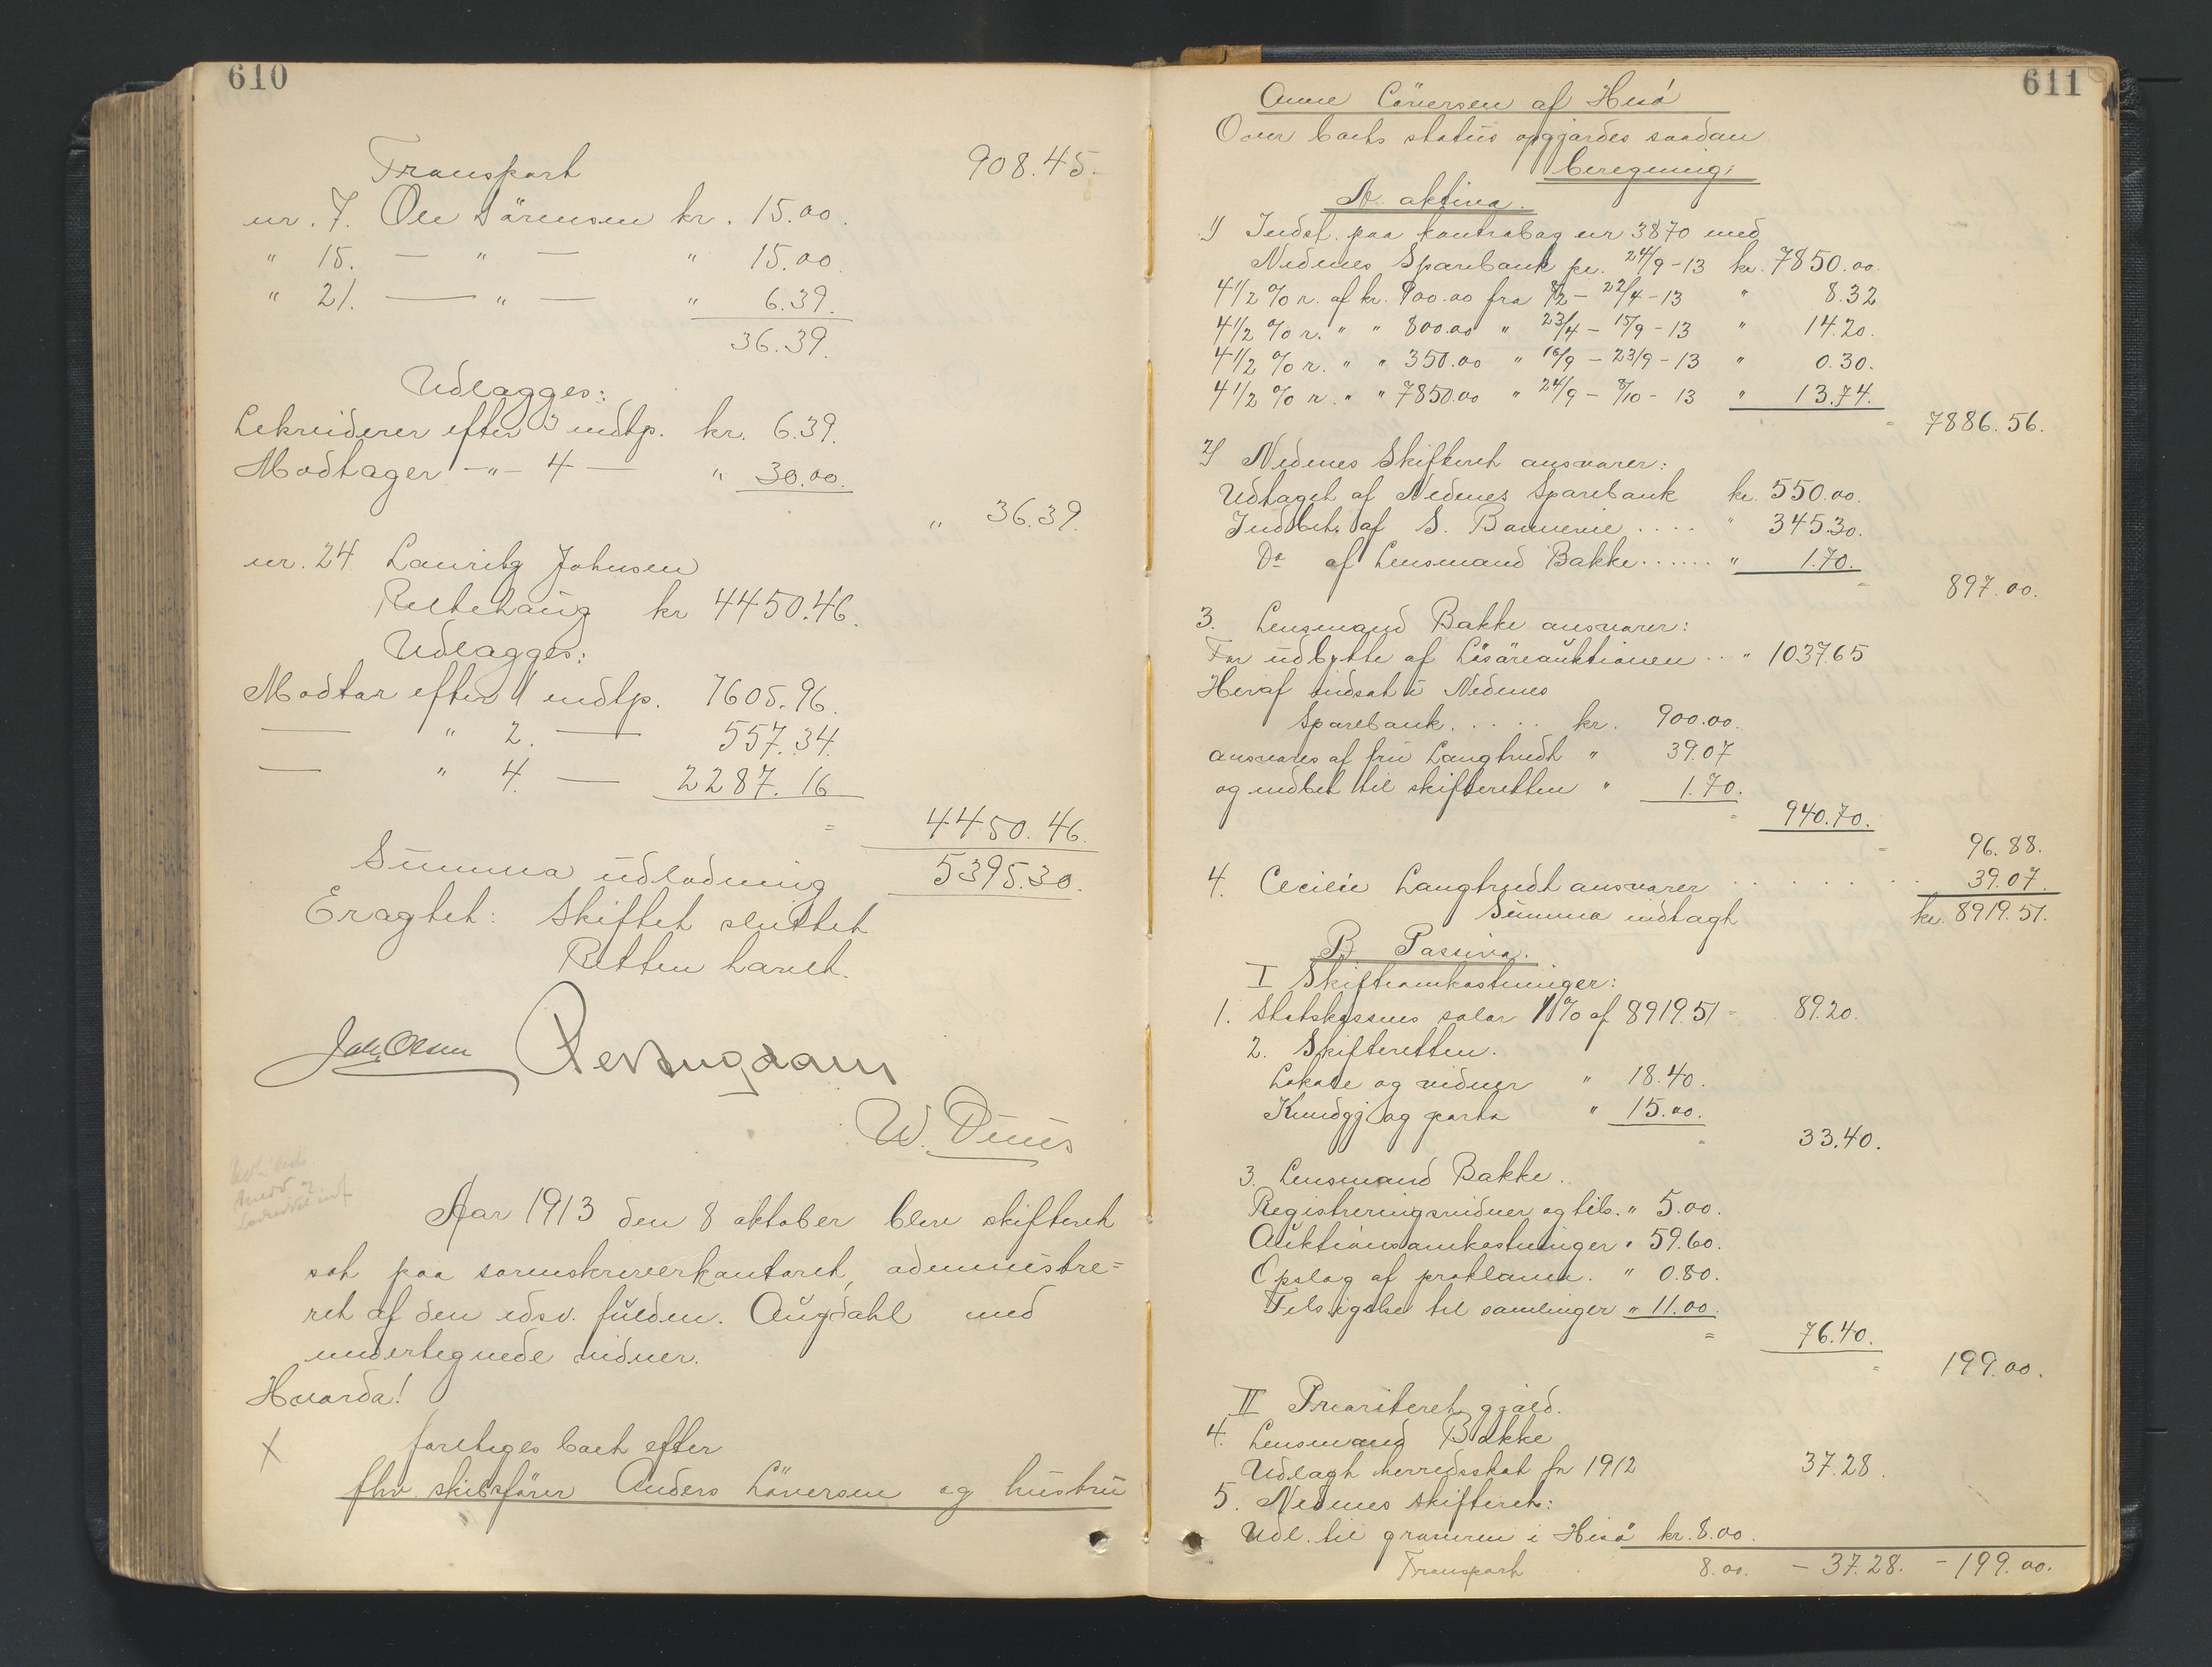 610
Transport 908.45.
nr. 7. Ole Sörensen kr. 15.00.
" 15. — " — " 15.00
" 21. — " — " 6.39.
36.39.
Udlægges:
Lekreiderer efter 3 indtp. kr. 6.39.
Modtager —"— 4 — " 30.00.
" 36.39.
nr. 24 Lauritz Johnsen
Resthaug kr 4450.46.
Udlægges:
Modtar efter 1 indtp. 1605.96.
— " 2. — 557.34.
— " 4. — 2287.16
= 4450.46.
Summa udlodning 5395.30.
Eragtet: Skiftet sluttet
Retten hævet.
Joh. Olsen Per Augdahl
W. Duus
Aar 1913 den 8 oktober blev skifteret
sat paa sorenskriverkontoret, administre=
ret af den edsv. fuldm. Augdahl med
undertegnede vidner.
Hvorda!
X foretages boet efter
fhv. skibsfører Anders Löversen og hustru
611
Anne Löversen af Hisö
Over boets status opgjordes saadan
beregning:
A. aktiva.
1) Indst. paa kontrabog nr 3870 med
Nedenes Sparebank pr. 24/9-13 kr. 7850.00.
4 1/2 % r. af kr. 900.00 fra 8/2 - 22/4-13 " 8.32
4 1/2 % r. " " 800.00 " 23/4 - 15/9-13 " 14.20.
4 1/2 % r. " " 350.00 " 16/9 - 23/9-13 " 0.30.
4 1/2 % r. " " 7850.00 " 24/9 - 8/10-13 " 13.74.
= 7886.56.
2) Nedenes Skifteret ansvarer:
Udtaget af Nedenes Sparebank kr. 550.00.
Indbet. af S. .... " 345.30.
Do af Lensmand Bakke...... " 1.70.
= 897.00.
3. Lensmand Bakke ansvarer:
For udbytte af Lösöreauktionen .. " 1037.65
Heraf indsat i Nedenes
Sparebank..... kr. 900.00.
ansvares af fru Langfeldt " 39.07
og indbet til skifteretten " 1.70.
= 940.70.
= 96.88.
4. Cecilie Langfeldt ansvarer ..... 39.07.
Summa indtægt kr. 8919.51.
B Passiva.
I Skifteomkostninger:
1. Statskassens salær 1% af 8919.51 = 89.20.
2. Skifteretten.
Lokale og vidner " 18.40.
Kundgj og porto " 15.00.
= 33.40.
3. Lensmand Bakke.
Registreringsvidner og tils. " 5.00.
Auktionsomkostninger " 59.60.
Opslag af proklama. " 0.80.
Tilsigelse til samlinger " 11.00.
= 76.40.
= 199.00.
II Prioriteret gjæld.
4. Lensmand Bakke
Udlagt herredsskat for 1912 37.28.
5. Nedenes skifteret:
Udl. til graveren i Hisö kr. 8.00.
Transport 8.00. - 37.28. - 199.00.